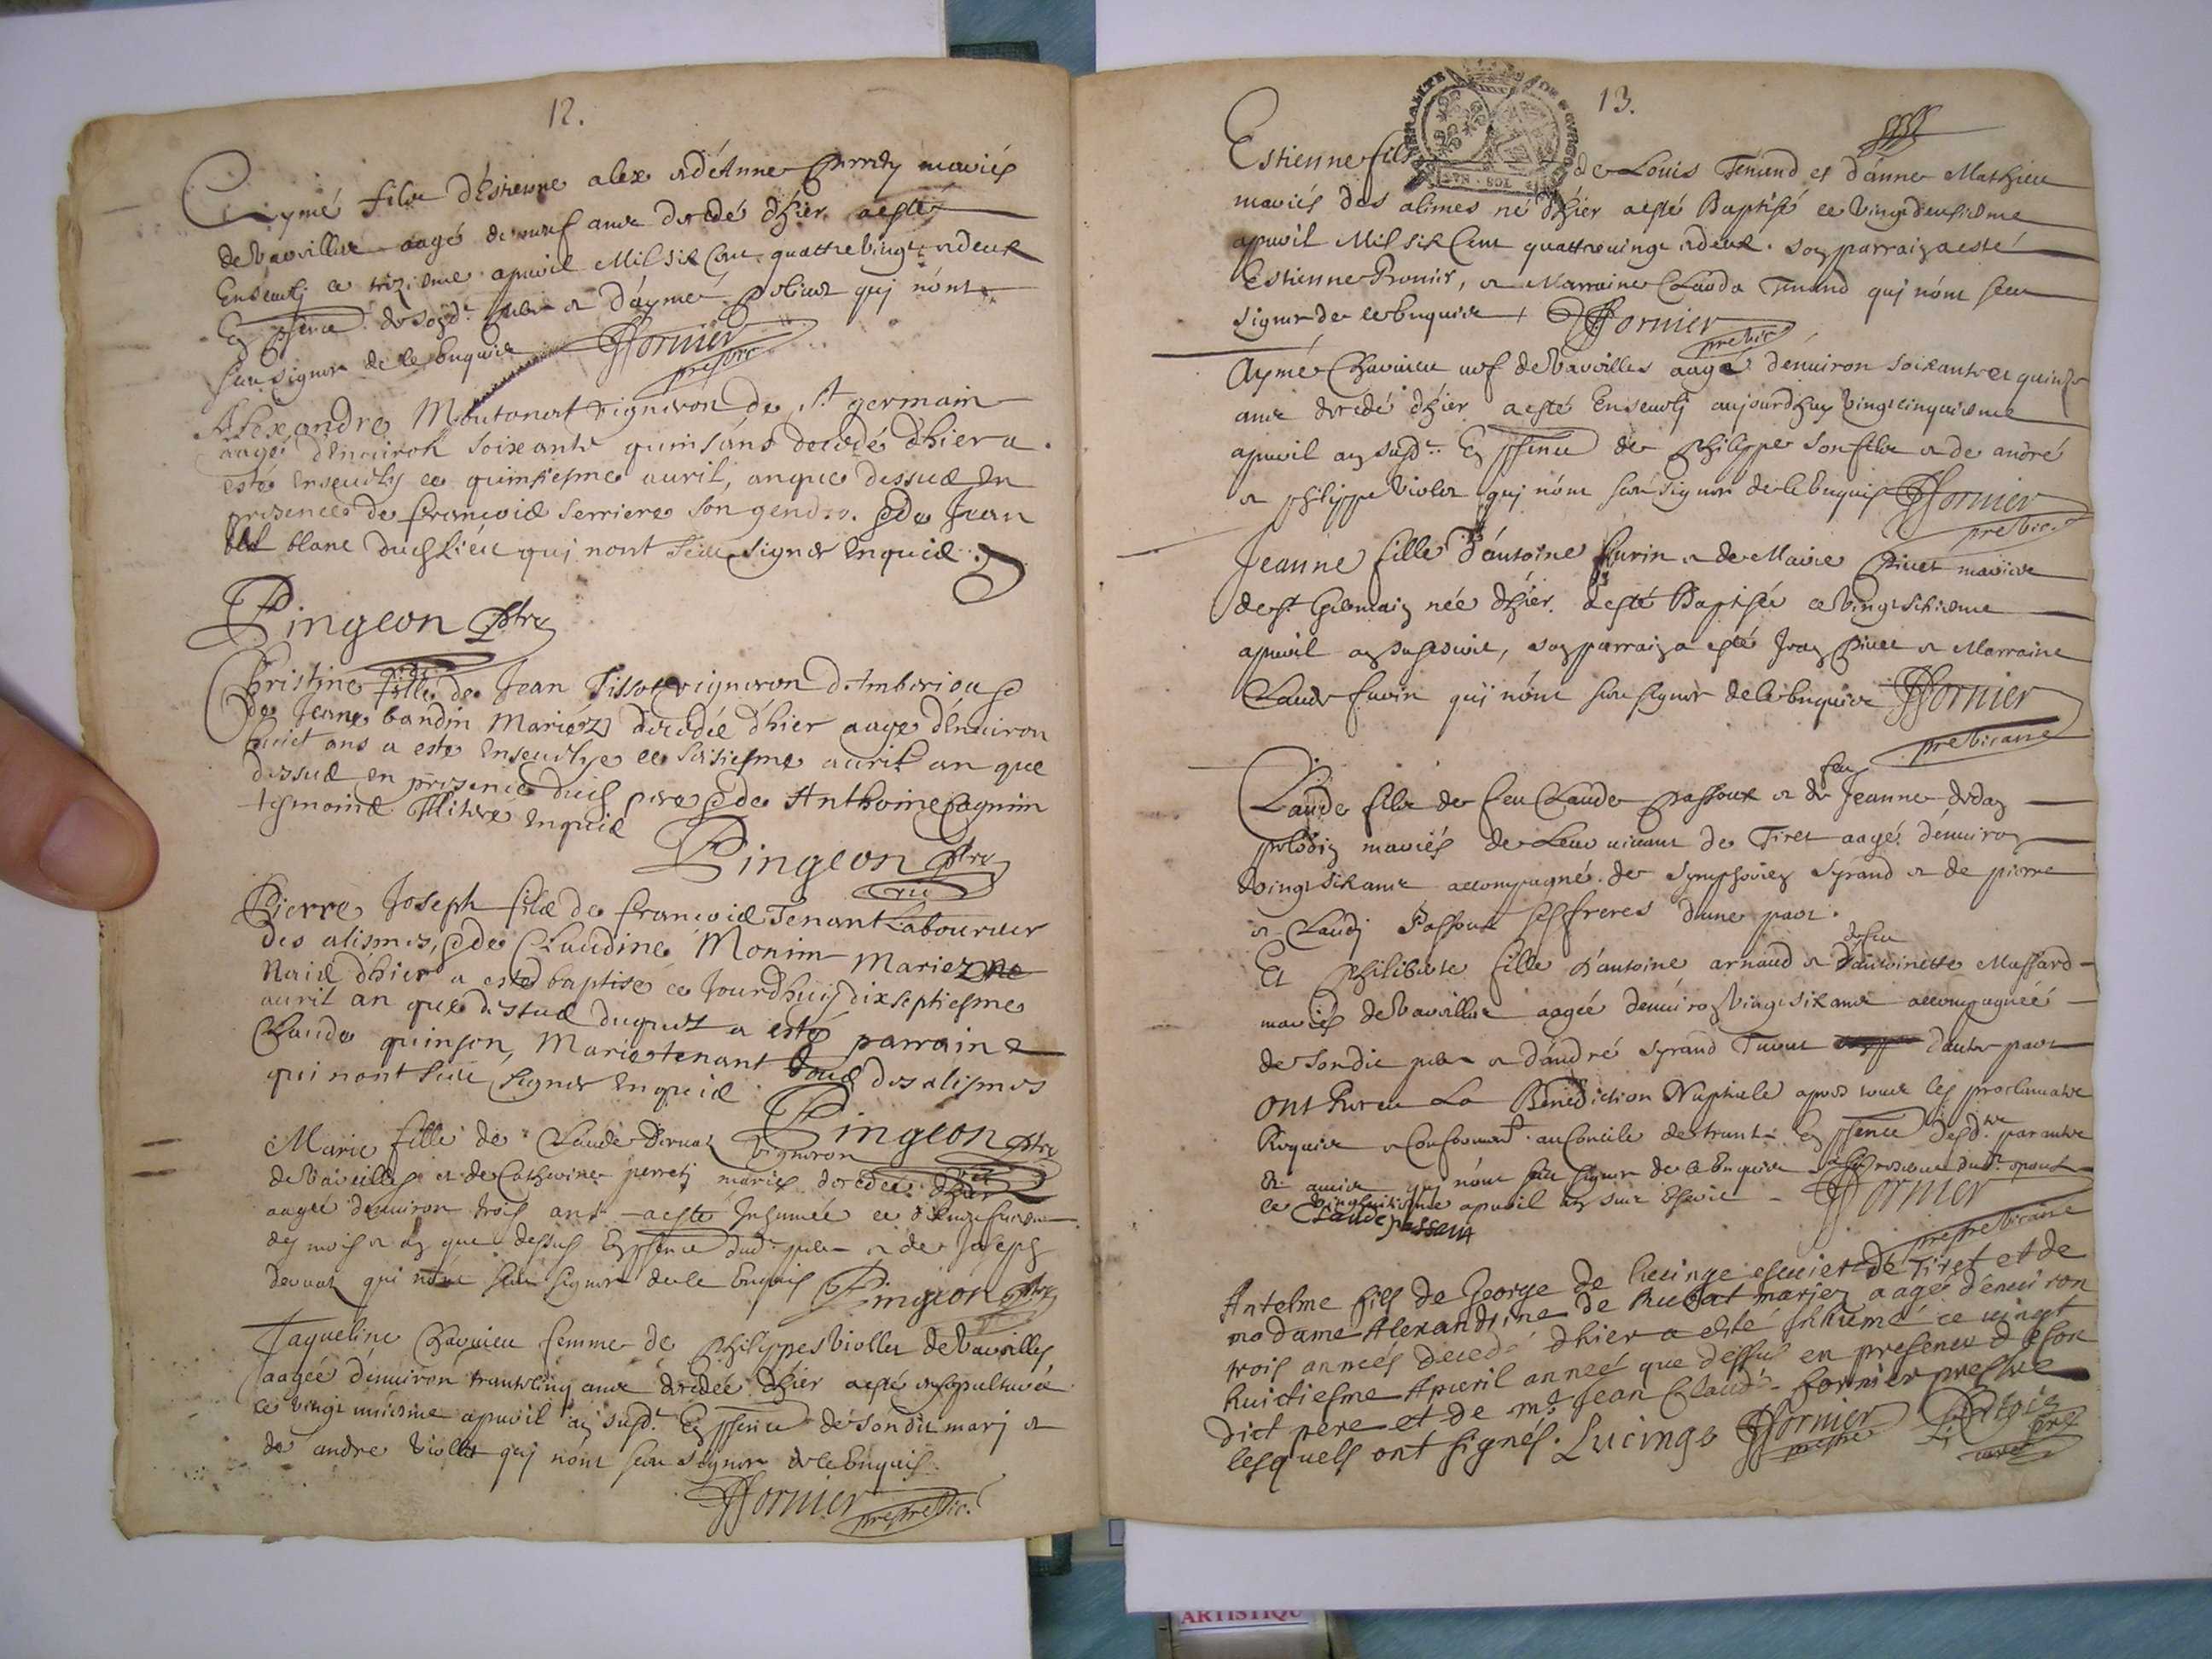 12.
Aymé filz d'Estienne alex & d'Anne mariés
de Vavrilles aagé de neuf ans decedé d'hier a esté
Ensevely ce trezieme apvril Mil six Cent quattre vingt & deux
En pñce de sond. pere & d'aymé qui n'ont
sceu signer de ce Enquis FFornier
prebre
Alexandre Moutonat vigneron de St germain
aagé d'enuiron soixante quins'ans decedé d'hier a
esté enseuely ce quinsiesme auril, an que dessus en
presence de francois serriere son gendre & de Jean
blanc qui nont sceu signer enquis
Pingeon ptre
Christine fille de Jean Tissot vigneron d'Amberiou &
de Jeane baudin Mariéz decedée d'hier aage d'enuiron
huict ans a este enseuelye ce seisiesme auril an que
dessus en presence dud pere & de Anthoine Cagnin
tesmoins enquis
Pingeon ptre
vic
Pierre Joseph fils de francois Tenant Laboureur
des alismes, & de Claudine Monim Mariez ne
Naié d'hier a este baptisé ce Jourdhuy dixseptiesme
auril an que dessus duquel a esté parrain
Claude quinson, Marie tenant tous des alismes
qui nont sceu signer enquis
Pingeon ptre
vic
Marie fille de Claude Deruaz vigneron
de Vavrilles & de Catherine perret mariés decedée d'hier
aagée d'enuiron trois ans a esté Inhumée ce
des mois & an que dessus En pñce dud. pere & de Joseph
deruaz qui n'ont sceu signer de ce Enquis Pingeon ptre
Jaqueline Chavieu femme de Philippes Viollet de Vavrilles
aagée d'enuiron trante cinq ans decedée d'hier a esté ensepulturée
ce vingt unieme apvril an susd. En pñce de sondit mary &
de andre viollet qui n'ont sceu signer de ce Enquis
FFornier prebre vic.
13.
GENERALITE DE BOURGOGNE
Estienne fils de Louis Tenand et d'anne Mathieu
mariés des alimes né d'hier a esté Baptisé ce vingt deusieme
apvril Mil six Cent quattre vingt & deux. son parrain a esté
Estienne Promier, & Marraine Clauda Tenand qui n'ont sceu
signer de ce Enquis FFornier
prebre vic.
Aymé Chavieu veuf de Vavrilles aagé d'enuiron soixante et quinze
ans decedé d'hier a esté Ensevely aujourdhuy vingt cinquieme
apvril an susd. En pñce de Philippe son filz & de andré
& philippe violet qui n'ont sceu signer de ce Enquis FFornier
prebre vic.
Jeanne fille d'antoine favrin & de Marie Pivet mariés
de St Germain née d'hier a esté Baptisée ce vingt sixieme
apvril an susescrit, son parrain a esté Jean Pivet & Marraine
Claude favrin qui n'ont sceu signer de ce Enquis FFornier
prebre vicaire
Claude filz de feu Claude passout & de feu Jeanne
mariés de Leur vivant de Tiret aagé d'enuiron
vingt six ans accompagné de symphorien syrand & de pierre
& Claudy Passout ses freres d'une part.
Et Philiberte fille d'antoine arnaud & de feu d'antoinette Massard
mariés de Vavrilles aagée d'enuiron vingt six ans accompagnée
de son dit pere & d'andré syrand d'autre part
ont Receu La Benediction Nuptiale apres toutes les proclamations
Requises & Conformemt au Concile de trante En pñce desd. parantz
& amis qui n'ont sceu signer de ce Enquis
ce vingthuitieme apvril an sus escrit FFornier
Claude passout
prebre vicaire
Antelme fils de George de lucinge escuier de Tiret et de
madame Alexandrine de mariez aagé d'enuiron
trois années decedé dhier a esté Inhumé ce vingt
huictiesme Apvril anneé que dessus en presence de son
dict pere et de mre Jean Claude Fornier prestre
lesquels ont signés. Lucinge FFornier
prestre